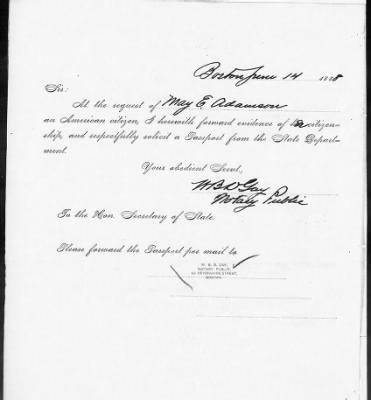 Boston June 14 1888
Sir:
At the request of May E. Adamson
an American citizen, I herewith forward evidence of her citizen-
ship, and respectfully solicit a Passport from the State Depart-
ment.
Your obedient Servt,
W.B.D. Gay
Notary Public
To the Hon. Secretary of State.
Please forward the Passport per mail to
W. B. D. GAY,
NOTARY PUBLIC,
STREET,
BOSTON.